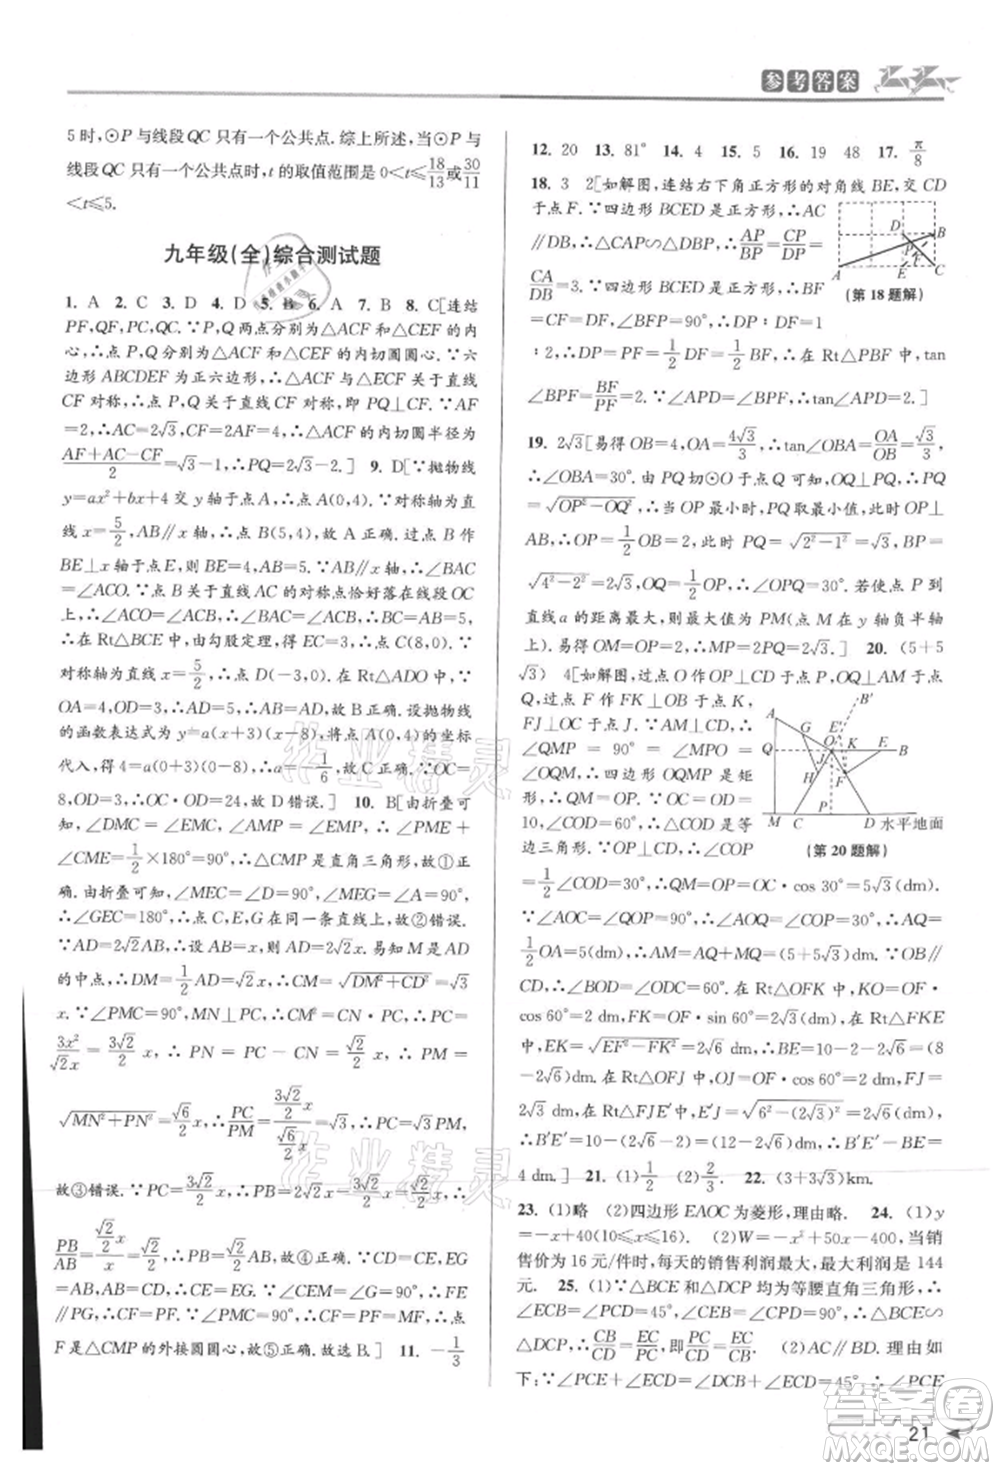 参考答案
5时,⊙P与线段QC只有一个公共点.综上所述,当⊙P与
线段QC只有一个公共点时,t的取值范围是0<t≤18/13或30/11
<t≤5.
九年级(全)综合测试题
1. A 2. C 3. D 4. D 5. B 6. A 7. B 8. C[连结
PF,QF,PC,QC.∵P,Q两点分别为△ACF和△CEF的内
心,∴点P,Q分别为△ACF和△CEF的内切圆圆心.∵六
边形ABCDEF为正六边形,∴△ACF与△ECF关于直线
CF对称,∴点P,Q关于直线CF对称,即PQ⊥CF.∵AF
=2,∴AC=2√3,CF=2AF=4,∴△ACF的内切圆半径为
(AF+AC-CF)/2=√3-1,∴PQ=2√3-2.] 9. D[∵抛物线
y=ax²+bx+4交y轴于点A,∴点A(0,4).∵对称轴为直
线x=5/2,AB∥x轴,∴点B(5,4),故A正确.过点B作
BE⊥x轴于点E,则BE=4,AB=5.∵AB∥x轴,∴∠BAC=
∠ACO.∵点B关于直线AC的对称点恰好落在线段OC
上,∴∠ACO=∠ACB,∴∠BAC=∠ACB,∴BC=AB=5,
∴在Rt△BCE中,由勾股定理,得EC=3,∴点C(8,0).∵
对称轴为直线x=5/2,∴点D(-3,0).∵在Rt△ADO中,
OA=4,DO=3,∴AD=5,故B,C正确.设抛物线的
函数表达式为y=a(x+3)(x-8),将点A(0,4)的坐标
代入,得4=a(0+3)(0-8),∴a=-1/6,故C正确.∵OC=
8,OD=3,∴OC·OD=24,故D错误.] 10. B[由折叠可
知,∠DMC=∠EMC,∠AMP=∠EMP,∴∠PME+
∠CME=1/2×180°=90°,∴△CMP是直角三角形,故①正
确.由折叠可知,∠MEC=∠D=90°,∠MEG=∠A=90°,
∴∠GEC=180°,∴点C,E,G在同一条直线上,故②错误.
∵AD=2√2AB,∴设AB=x,则AD=2√2x.易知M是AD
的中点,∴DM=1/2AD=√2x,∴CM=√(DM²+CD²)=√3
x.∵∠PMC=90°,MN⊥PC,∴CM²=CN·CP,∴CP=
3x²/√2x=3√2/2x,∴PN=CP-CN=√2/2x,∴PM=
√(MN²+PN²)=√6/2x,∴PC/PM=(3√2/2x)/(√6/2x)=√3,∴PC=√3PM,
故③错误.∵PC=3√2/2x,∴PB=2√2x-3√2/2x=√2/2x,∴
PB/AB=(√2/2x)/x,∴PB=√2/2AB,故④正确.∵CD=CE,EG=
AB,AB=CD,∴CE=EG.∵∠CEM=∠G=90°,∴FE
∥PG,∴CF=PF.∵∠PMC=90°,∴CF=PF=MF,∴点
F是△CMP的外接圆圆心,故⑤正确.故选B.] 11. -1/3
12. 20 13. 81° 14. 4 15. 5 16. 19 48 17. π/8
18. 3 2[如解图,连结右下角正方形的对角线BE,交CD
于点F.∵四边形BCED是正方形,∴AC
∥DB,∴△CAP∽△DBP,∴AP/BP=CP/DP=
CA/DB=3.∵四边形BCED是正方形,∴BF
=DF=1/2CD,∠BFP=90°,∴DP∶DC=1
∶2,∴DP=PF=1/2DF=1/2BF,∴在Rt△PBF中,tan
∠BPF=BF/PF=2.∵∠APD=∠BPF,∴tan∠APD=2.]
(第18题解)
19. 2√3[易得OB=4,OA=4√3/3,∴tan∠OBA=OA/OB=√3/3,
∴∠OBA=30°.由PQ切⊙O于点Q,可知OQ⊥PQ,∴PQ
=√(OP²-OQ²).∵OQ=2,∴当OP最小时,PQ最小,
此时PQ取最小值,∴OP⊥
AB,∴OP=1/2OB=2,此时PQ=√(2²-1²)=√3,∴OQ=
√(4²-2²)=1,∴⊙O的半径为1.若使点P到
直线a的距离最大,则最大值为PM(点M在y轴负半轴
上).此时OM=OP=2,∴PM=4] 20. (5+5
√3) 4[如解图,过点O作OP⊥CD于点P,
Q,过点F作FK⊥OB于点K,
FJ⊥OC于点J.∵AM⊥CM,
∴∠QMP=90°=∠MPO=
∠OQM,∴四边形OQMP是矩
形,∴QM=OP.∵OC=OD=
10,∠COD=60°,∴△COD是等
边三角形.∵OP⊥CD,∴∠COP
=1/2∠COD=30°,∴QM=OP=OC·cos30°=5√3(dm).
∵∠AOC=∠QOP=90°,∴∠AOQ=∠COP=30°,∴AQ=
1/2OA=5(dm),∴AM=AQ+MQ=(5+5√3)dm.∵OB
∥CD,∴∠BOD=∠ODC=60°.在Rt△OFK中,KO=OF·
cos60°=2dm,FK=OF·sin60°=2√3dm,在Rt△FKE
中,EK=√(EF²-FK²)=2√6dm,∴BE=10-2-2√6=(8
-2√6)dm.在Rt△OFJ中,OJ=OF·cos60°=2dm,FJ=
2√3dm.在Rt△FJE′中,E′J=√(6²-(2√3)²)=2√6dm,
∴B′E′=10-(2√6-2)=(12-2√6)dm,∴B′E′-BE=
4dm.] 21. (1)1/2 (2)1/2 22. (3+3√3)km.
(第20题解)
水平地面
23. (1)略 (2)四边形EAOC为菱形,理由略. 24. (1)y
=-x+40(10≤x≤16). (2)W=-x²+50x-400,当销
售价为16元/件时,每天的销售利润最大,最大利润是144
元. 25. (1)∵△BCE与△DCP均为等腰直角三角形,∴
∠ECB=∠PCD=45°,∠CEB=∠CPD=90°,∴△BCE∽
△DCP,∴CB/CD=EC/PC,∴CB/EC=CD/PC. (2)AC∥BD.理由如
下:∵∠PCE+∠ECD=∠BCD+∠ECD=45°,∴∠PCE
21